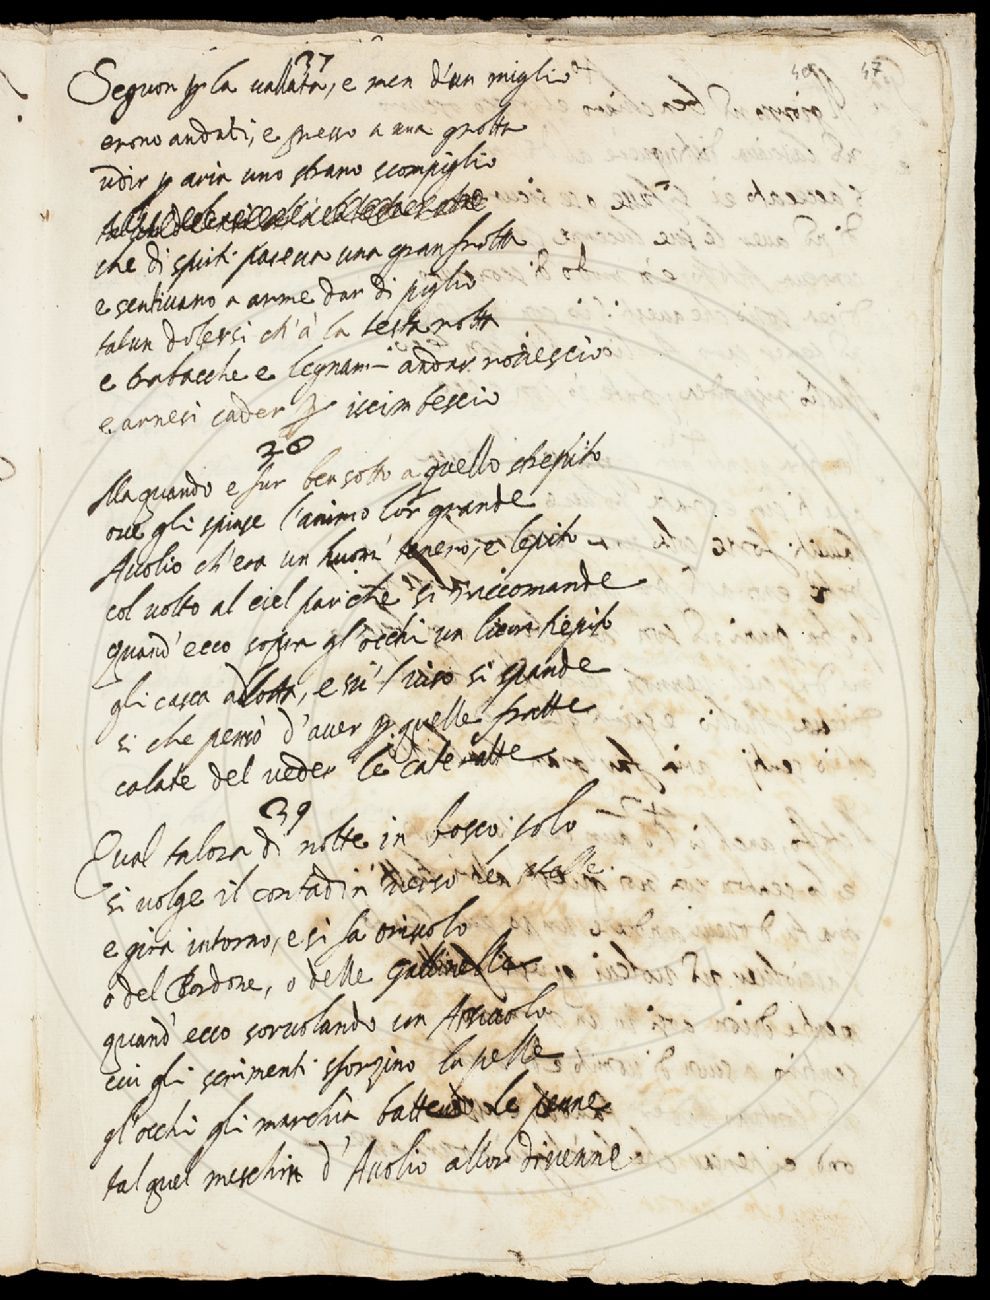 57
37
Seguon p la vallata, e men d'un miglio
erono andati, e presso a una grotta
udir p aria uno strano scompiglio
che di spirti faceva una gran frotta
e sentivano a arme dar di piglio
talun dolersi ch'à la testa rotta
e trabacche e legnami andar rovescio
e arnesi cader p iscimbescio
38
Ma quando e fur ben sotto a quello strepito
ove gli spinse l'animo lor grande
Avolio ch'era un huom' tenero, e lepito
col volto al ciel par che si raccomande
quand' ecco sopra gl'occhi un
gli casca allotta, e su'l viso si spande
si che pensò d'aver p quelle fratte
calate del veder le cateratte
39
Qual talora di notte in bosco solo
si volge il contadin' verso le stelle
e gira intorno, e si fa orivolo
o del Bordone, o delle Gallinelle
quand' ecco sorvolando un Assivolo
cui gli scrimenti sforzino la pelle
gl'occhi gli marchia battendo le penne
tal quel meschin d'Avolio allor divenne